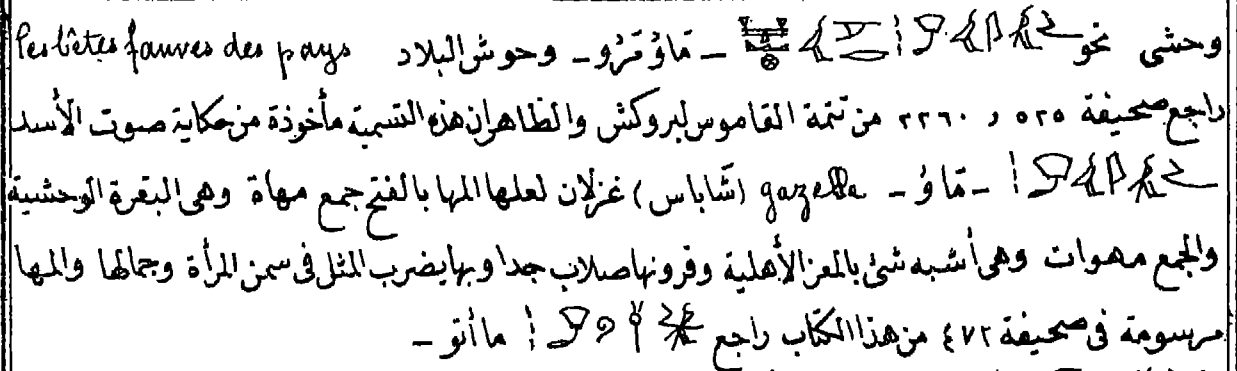 وحشى نحو _ مَاوُ مَرُو _ وحوش البلاد les bêtes fauves des pays
راجع صحيفة ٥٢٥ و ٢٢٦٠ من تتمة القاموس لبروكش والظاهر ان هذه التسمية مأخوذة من حكاية صوت الأسد
_ مَا وُ _ gazelle (شَاباس) غزلان لعلها المها بالفتح جمع مهاة وهى البقرة الوحشية
والجمع مهوات وهى أشبه شئ بالمعز الأهلية وقرونها صلاب جدا وبها يضرب المثل فى سمن المرأة وجمالها والمها
مرسومة فى صحيفة ٤٧٢ من هذا الكتاب راجع ما أتو _